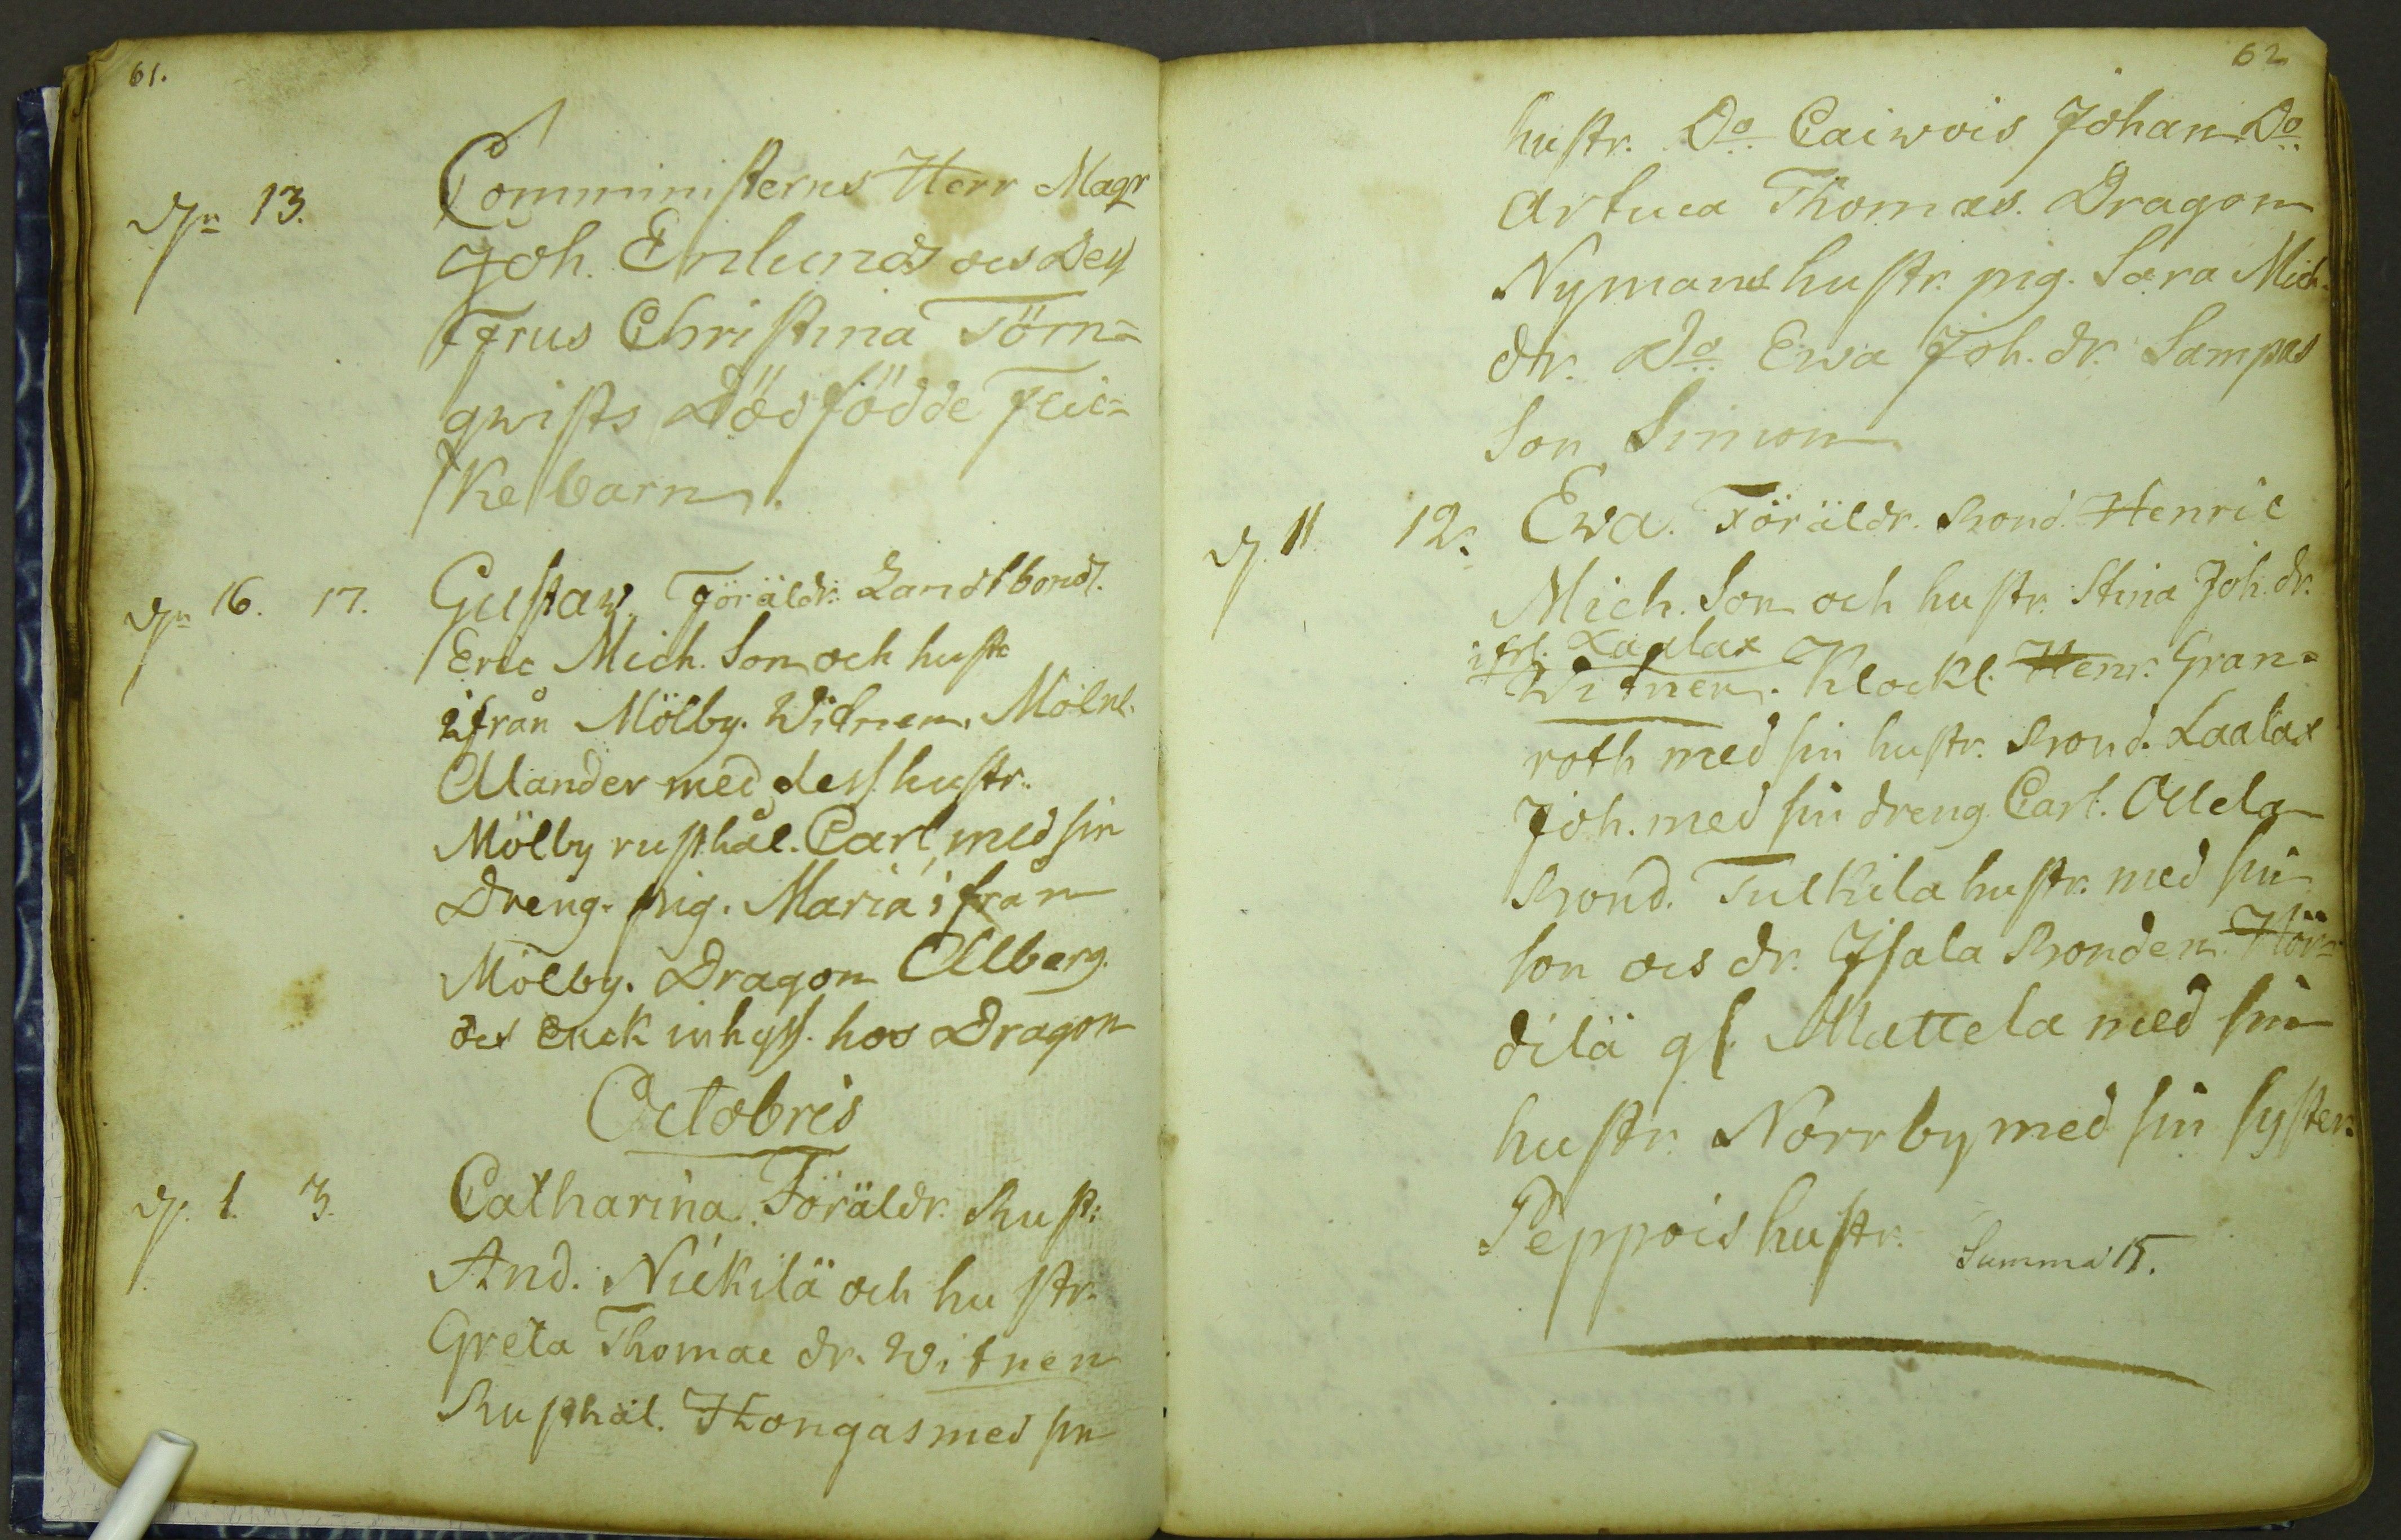 61.
dn 13. Comministerns Herr Magr
Joh. Enlunds ocs Dess
Frus Christina Törn=
qwists Dödfödde Flic=
ke barn.
dn 16. 17. Gustaw. Föräldr. Landtbond.
Eric Mich. Son och hustr
ifrån Mölby. Witnen. Mölnl.
Alander med dess hustr.
Mölby rusthål. Carl, med sin
Dreng. pig. Maria ifrån
Mölby. Dragon Allberg.
ocs Enck inhyss. hos Dragon
Octobris
d. 1. 3. Catharina. Föräldr. Rust:
And. Nickilä och hustr.
Greta Thomae dr. Witnen
Rusthål. Thongas med sin
62
hustr. Do Caiwois Johan Do
Artuca Thomas. Dragon
Nymans hustr. pig. Sara Mich-
dtr. Do Ewa Joh. dr. Sampas
Son Simon
d. 11 12. Ewa. Föräldr. Bond. Henric
Mich. Son och hustr. Stina Joh. dr.
ifrå. Laalax
Witnen. Klockl. Henr. Gran=
roth med sin hustr. Bond. Laalax
Joh. med sin dreng Carl. Ollela
Bond. Tulkila hustr. med sin
son ocs dr. Isala Bonden. Hör=
dilä gl. Mattela med sin
hustr. Norrby med sin syster.
Peppois hustr. Summa 15.